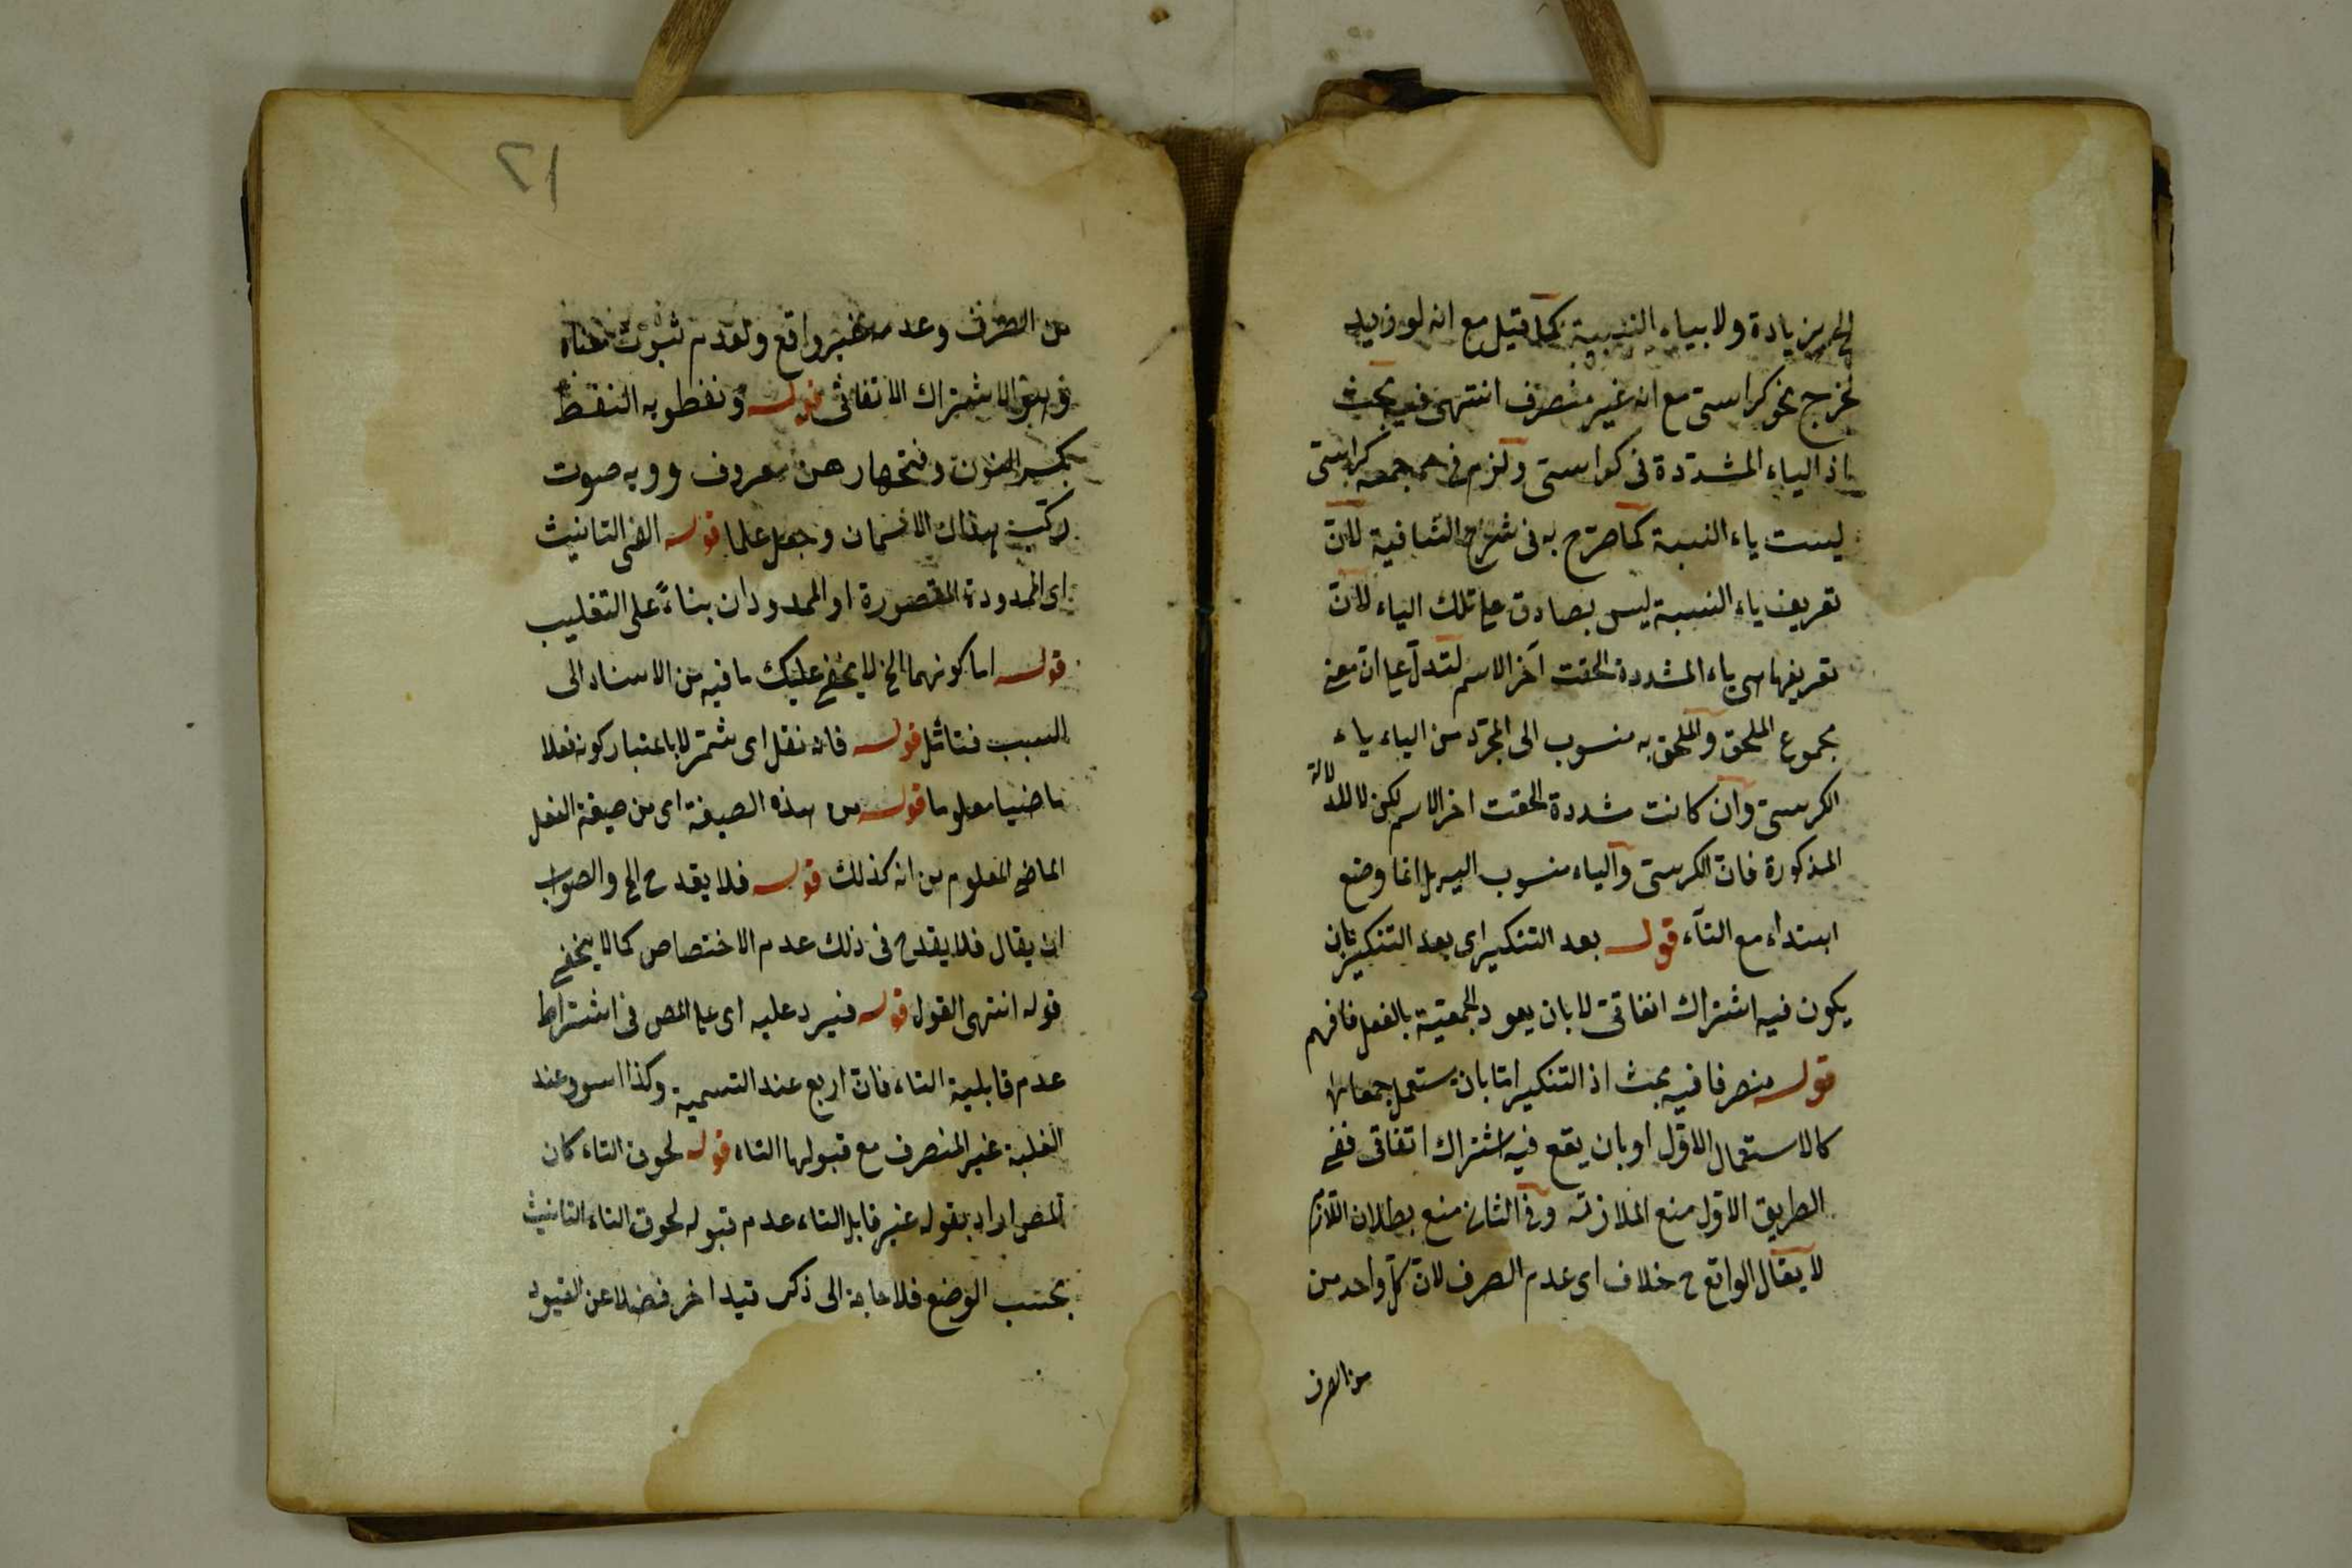 الخ بزيادة ولا بياء النسبة كما قيل مع انه لو زيد
لخرج نحو كراسى مع انه غير منصرف انتهى ففيه بحث
اذ الياء المشددة فى كراسى ولزم فى جمعه كراسى
ليست ياء النسبة كما صرح به فى شرح الشافية لان
تعريف ياء النسبة ليس بصادق على تلك الياء لان
تعريفها هى ياء المشددة الحقت آخر الاسم لتدل على ان معنى
مجموع الملحق والملحق به منسوب الى المجرد من الياء ياء
الكرسى وان كانت مشددة الحقت اخر الاسم لكن لا للدلالة
المذكورة فان الكرسى والياء منسوب اليه بل انما وضع
ابتداء مع التاء قوله بعد التنكير اى بعد التنكير بان
يكون فيه اشتراك اتفاقى لا بان يعود الجمعية بالفعل فافهم
قوله منصرفا فيه بحث اذ التنكير اما بان يستعمل جمعا
كالاستعمال الاول او بان يقع فيه اشتراك اتفاقى ففى
الطريق الاول منع الملازمة وفى الثانى منع بطلان اللازم
لا يقال الواقع ح خلاف اى عدم الصرف لان كل واحد من
من الصرف
٢١
من الصرف وعدمه غير واقع ولعدم ثبوت
الاشتراك الاتفاقى قوله ونفطويه النفط
بكسر النون وفتحها دهن معروف وويه صوت
ركب هذان الاسمان وجعل علما قوله الفى التانيث
اى الممدودة المقصورة او الممدودان بناءً على التغليب
قوله اما كونهما الخ لا يخفى عليك ما فيه من الاسناد الى
السبب فتامل قوله فانه نقل اى شمر لا باعتبار كونه فعلا
ماضيا معلوما قوله من هذه الصيغة اى من صيغة الفعل
الماضى المعلوم من انه كذلك قوله فلا يقدح الخ والصواب
ان يقال فلا يقدح فى ذلك عدم الاختصاص كما لا يخفى
قوله انتهى القول قوله فيرد عليه اى على المص فى اشتراط
عدم قابلية التاء فان اربع عند التسمية وكذا اسود عند
الغلبة غير المنصرف مع قبولها التاء قوله لحوق التاء كان
المص اراد بقوله غير قابل التاء عدم قبوله لحوق التاء التانيث
بحسب الوضع فلا حاجة الى ذكر قيد اخر فضلا عن القيود